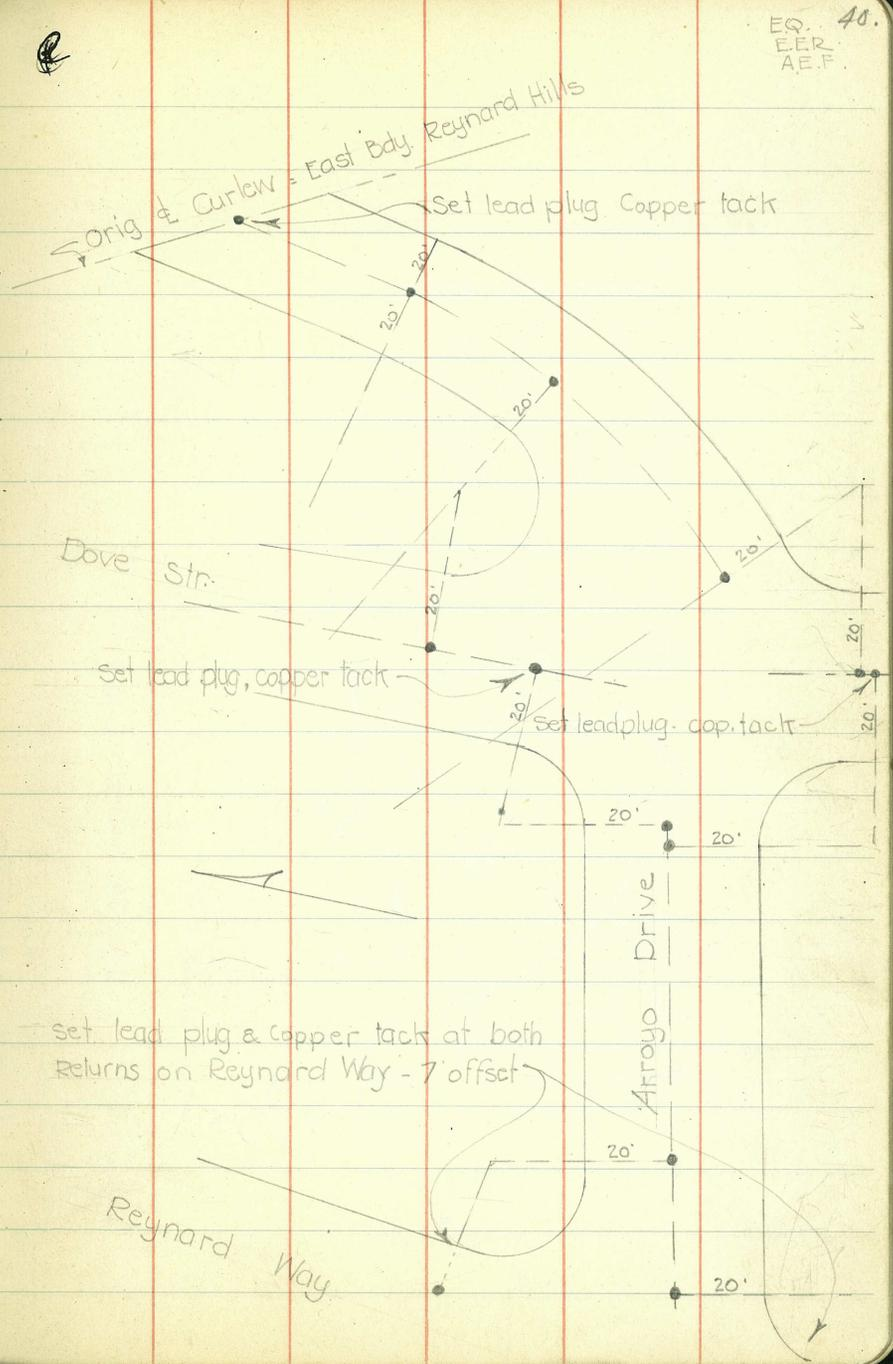 40.
E.Q.
E.E.R.
A.E.F.
Orig ⅊ Curlew = East Bdy. Reynard Hills
Set lead plug Copper tack
20'
20'
20'
20'
Dove Str.
20'
20'
Set lead plug, copper tack
20'
Set lead plug. cop. tack
20'
20'
20'
Arroyo Drive
set lead plug & copper tack at both
Returns on Reynard Way - 7' offset
20'
Reynard Way
20'